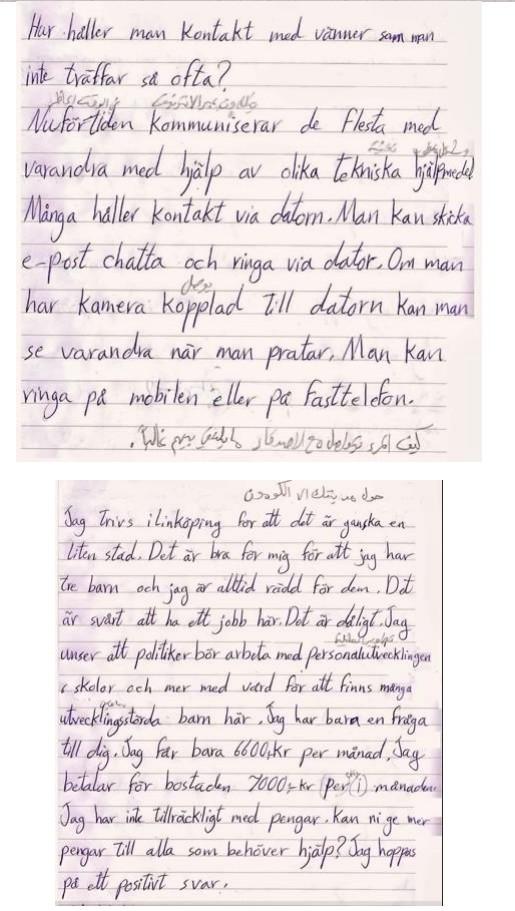 Hur håller man kontakt med vänner som man
inte träffar så ofta?
Nuförtiden kommuniserar de flesta med
varandra med hjälp av olika tekniska hjälpmedel
Många håller kontakt via datorn. Man kan skicka
e-post chatta och ringa via dator. Om man
har kamera kopplad till datorn kan man
se varandra när man pratar. Man kan
ringa på mobilen eller på fasttelefon.
كيف المرء يتواصل مع الأصدقاء غالباً.
Jag trivs i linköping for att det är ganska en
liten stad. Det är bra för mig för att jag har
tre barn och jag är alltid rädd för dem. Det
är svårt att ha ett jobb här. Det är dåligt. Jag
unser att politiker bör arbeta med personalutvecklingen
i skolor och mer med vård för att finns många
utvecklingsstörda barn här. Jag har bara en fråga
till dig. Jag får bara 6600:kr per månad. Jag
betalar för bostaden 7000:-kr (per i) månaden
Jag har inte tillräckligt med pengar. Kan ni ge mer
pengar till alla som behöver hjälp? Jag hoppas
på ett positivt svar.